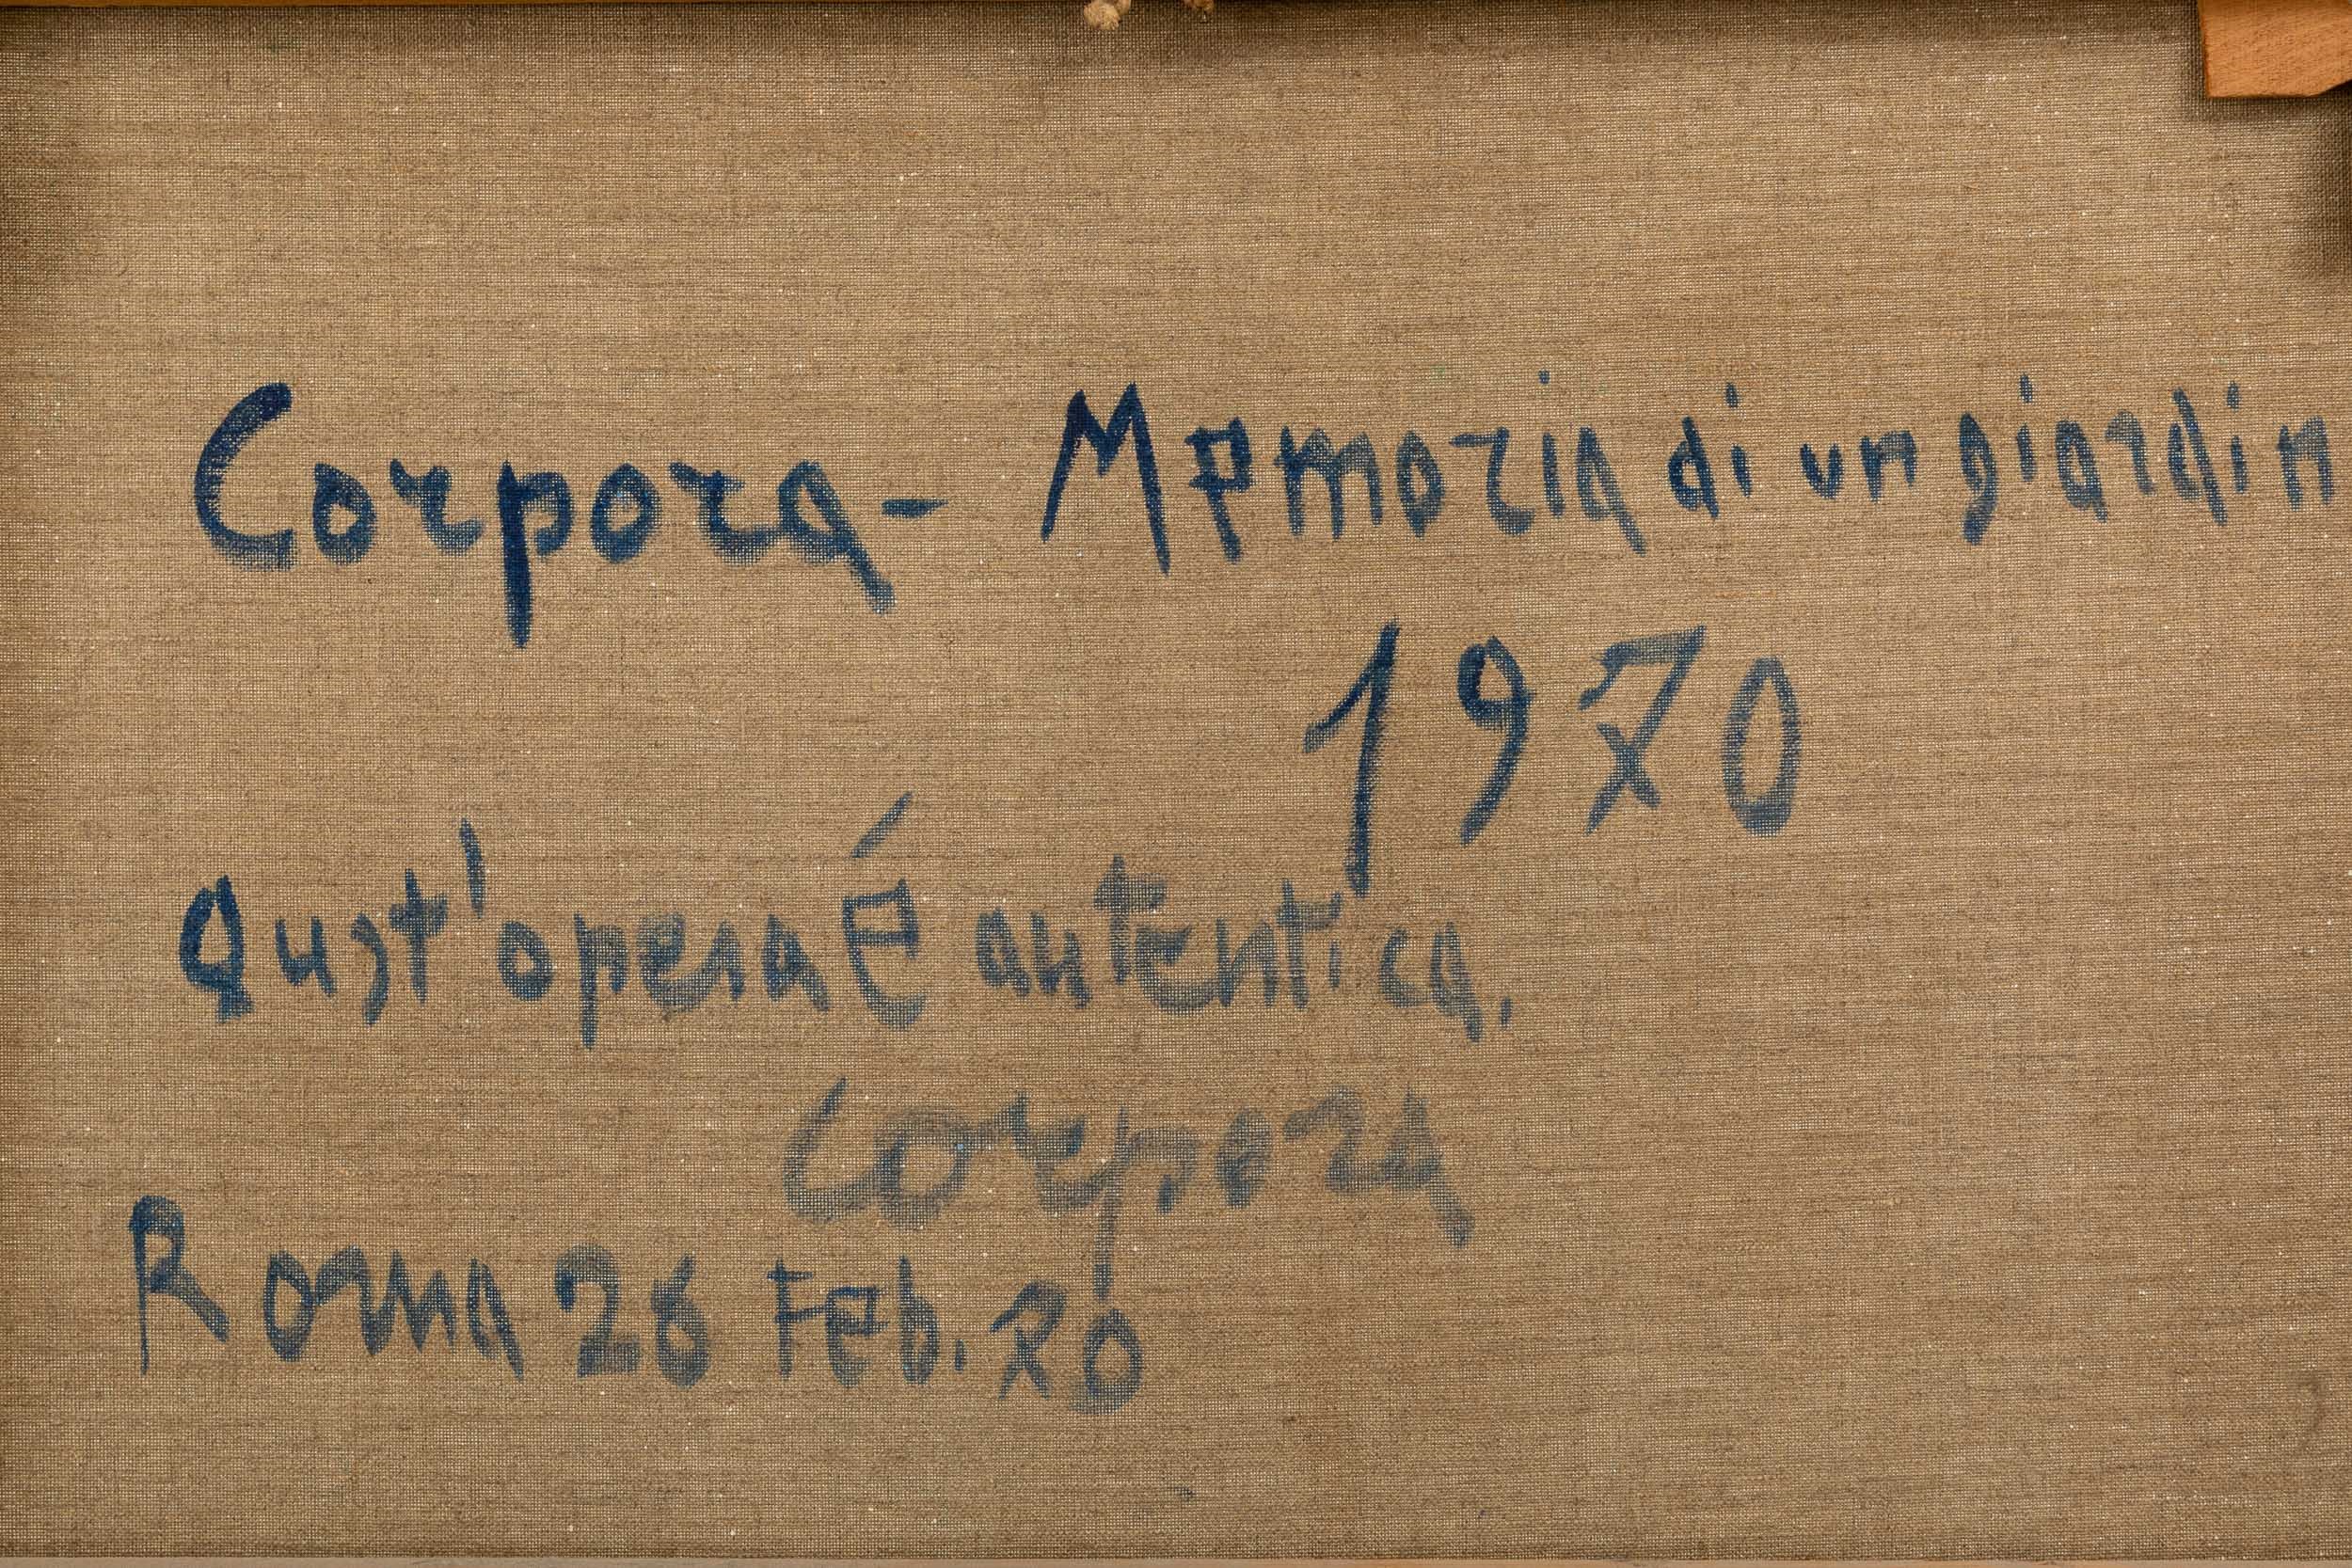 Corpora - Memoria di un giardin
1970
Qust'opera É autentica.
Corpora
Roma 26 Feb. 70